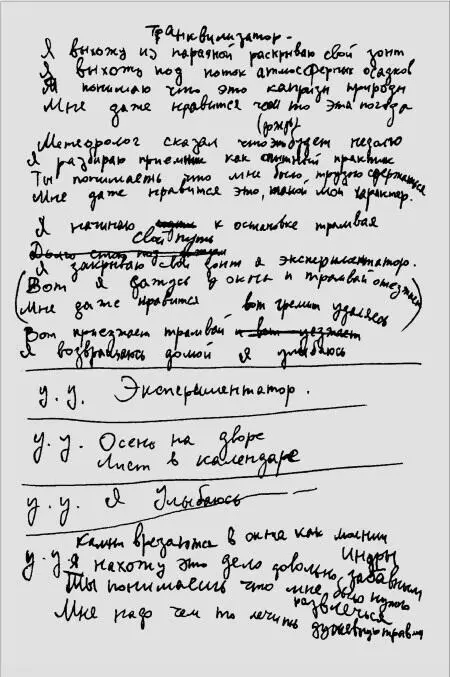 Транквилизатор.
Я выхожу из парадной раскрываю свой зонт
Я выхожу под поток атмосферных осадков
Я понимаю что это капризы природы
Мне даже нравится чем то эта погода
Метеоролог сказал что будет неделю
(дождь)
Я разбираю приемник как опытный практик
Ты понимаешь что мне было трудно сдержаться
Мне даже нравится это, такой мой характер.
Я начинаю к остановке трамвая
свой путь
Долго стою под
Я закрываю свой зонт я экспериментатор.
(Вот я сажусь у окна и трамвай отъезжает
Мне даже нравится вот гремит удаляясь)
Вот приезжает трамвай и вот уезжает
Я возвращаюсь домой я улыбаюсь
у. у. Экспериментатор.
у. у. Осень на дворе
Лист в календаре
у. у. Я Улыбаюсь
Камни врезаются в окна как молнии
Индры
у. у. Я нахожу это дело довольно забавным
Ты понимаешь что мне было нужно
развлечься
Мне надо чем то лечить душевную травму